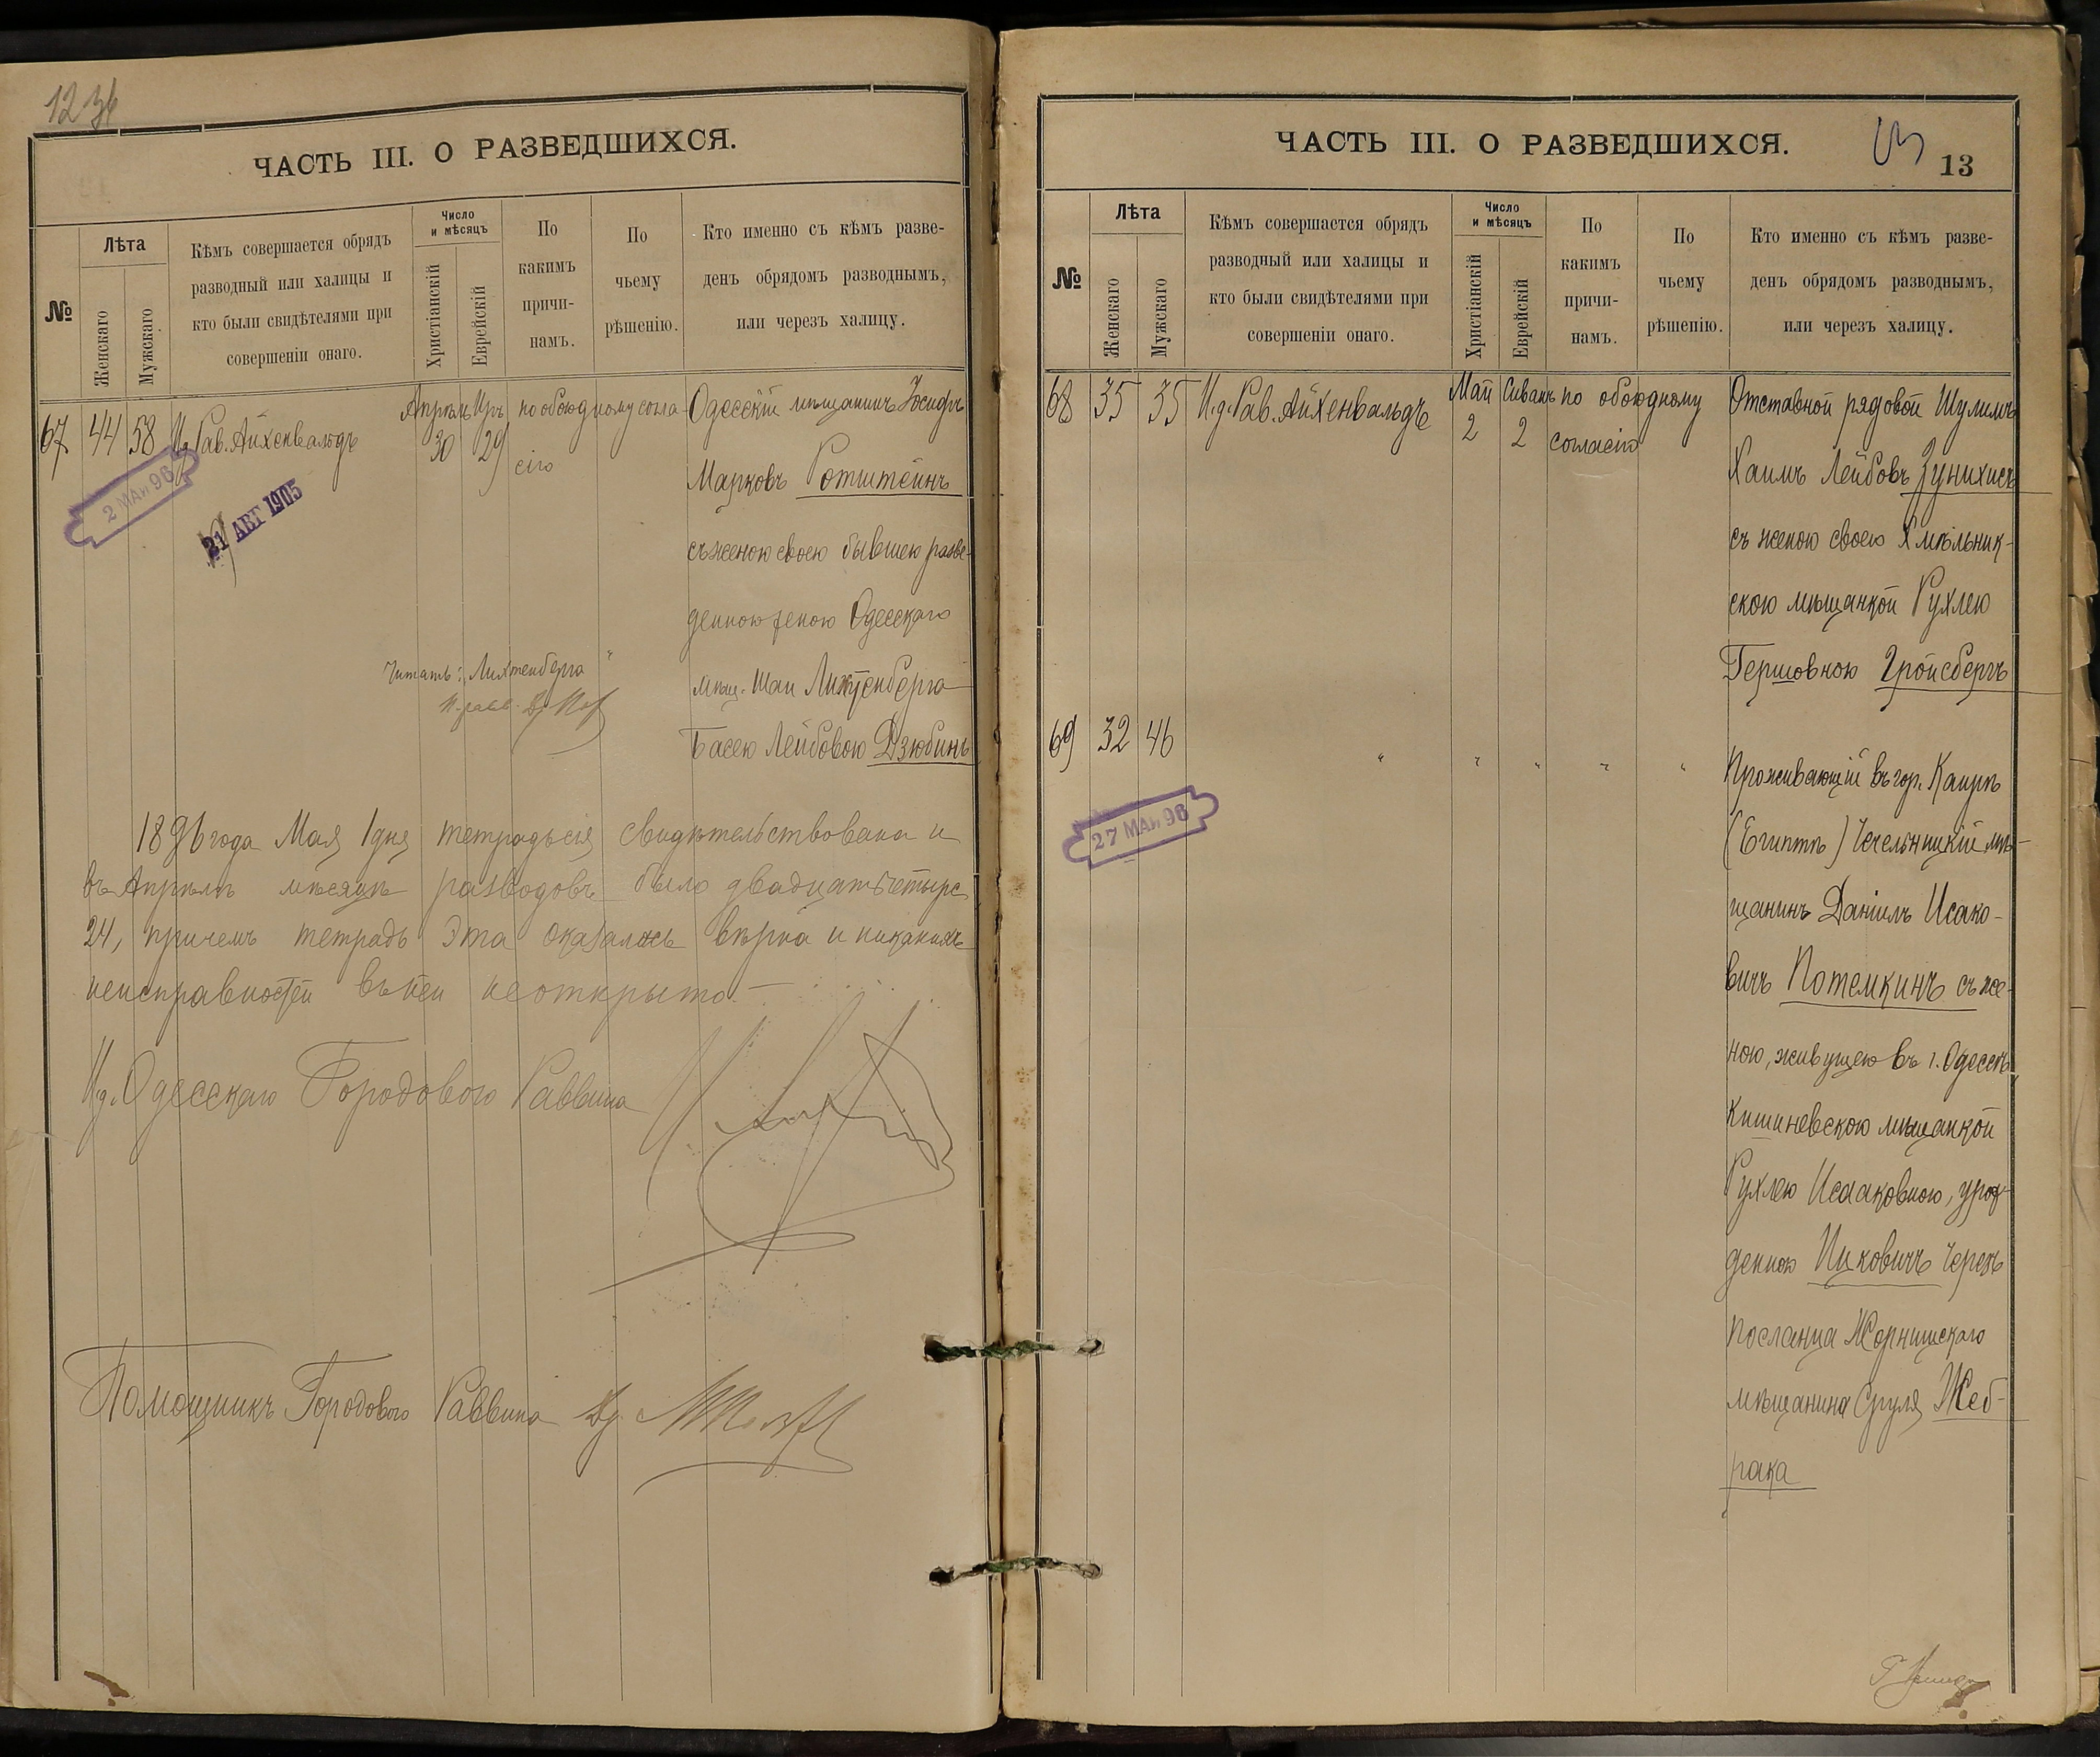 ЧАСТЬ III. О РАЗВЕДШИХСЯ.
№
Лѣта
Женскаго
Мужскаго
Кѣмъ совершается обрядъ
разводный или халицы и
кто были свидѣтелями при
совершеніи онаго.
Число
и мѣсяцъ
Христіанскій
Еврейскій
По
какимъ
причи-
намъ.
По
чьему
рѣшенію.
Кто именно съ кѣмъ разве-
денъ обрядомъ разводнымъ,
или черезъ халицу.
67 44 58 И.д. Рав. Айхенвальдъ
Апрѣль 30
Иръ 29
по обоюдному согла-
сію
Одесскій мѣщанинъ Іосифъ
Марковъ Ротштейнъ
съ женою своею бывшею разве-
денною женою Одесскаго
мѣщ. Шаи Лихтенберга
Басею Лейбовою Дзюбинъ
2 МАЯ 96
21 АВГ 1905
Читать: Лихтенберга
1896 года Мая 1 дня тетрадь сія свидѣтельствована и
въ Апрѣлѣ мѣсяцѣ разводовъ было двадцать четыре
24, причемъ тетрадь эта оказалась вѣрна и никакихъ
неисправностей въ ней не открыто.—
И.д. Одесскаго Городового Раввина
Помощникъ Городового Раввина Др.
ЧАСТЬ III. О РАЗВЕДШИХСЯ.
13
№
Лѣта
Женскаго
Мужскаго
Кѣмъ совершается обрядъ
разводный или халицы и
кто были свидѣтелями при
совершеніи онаго.
Число
и мѣсяцъ
Христіанскій
Еврейскій
По
какимъ
причи-
намъ.
По
чьему
рѣшенію.
Кто именно съ кѣмъ разве-
денъ обрядомъ разводнымъ,
или черезъ халицу.
68 35 35 И.д. Рав. Айхенвальдъ
Май 2
Сиванъ 2
по обоюдному
согласію
Отставной рядовой Шулимъ
Хаимъ Лейбовъ Зунихисъ
съ женою своею Хмѣльник-
скою мѣщанкой Рухлею
Гершовною Гройсбергъ
69 32 46 " " " " "
Проживающій въ гор. Каирѣ
(Египтѣ) Чечельницкій мѣ-
щанинъ Даніилъ Исако-
вичъ Потемкинъ съ же-
ною, живущею въ г. Одессѣ
Кишиневскою мѣщанкой
Рухлею Исааковною, урож-
денною Ицковичъ черезъ
посланца Жорнищскаго
мѣщанина Сруля Жеб-
рака
27 МАЯ 96